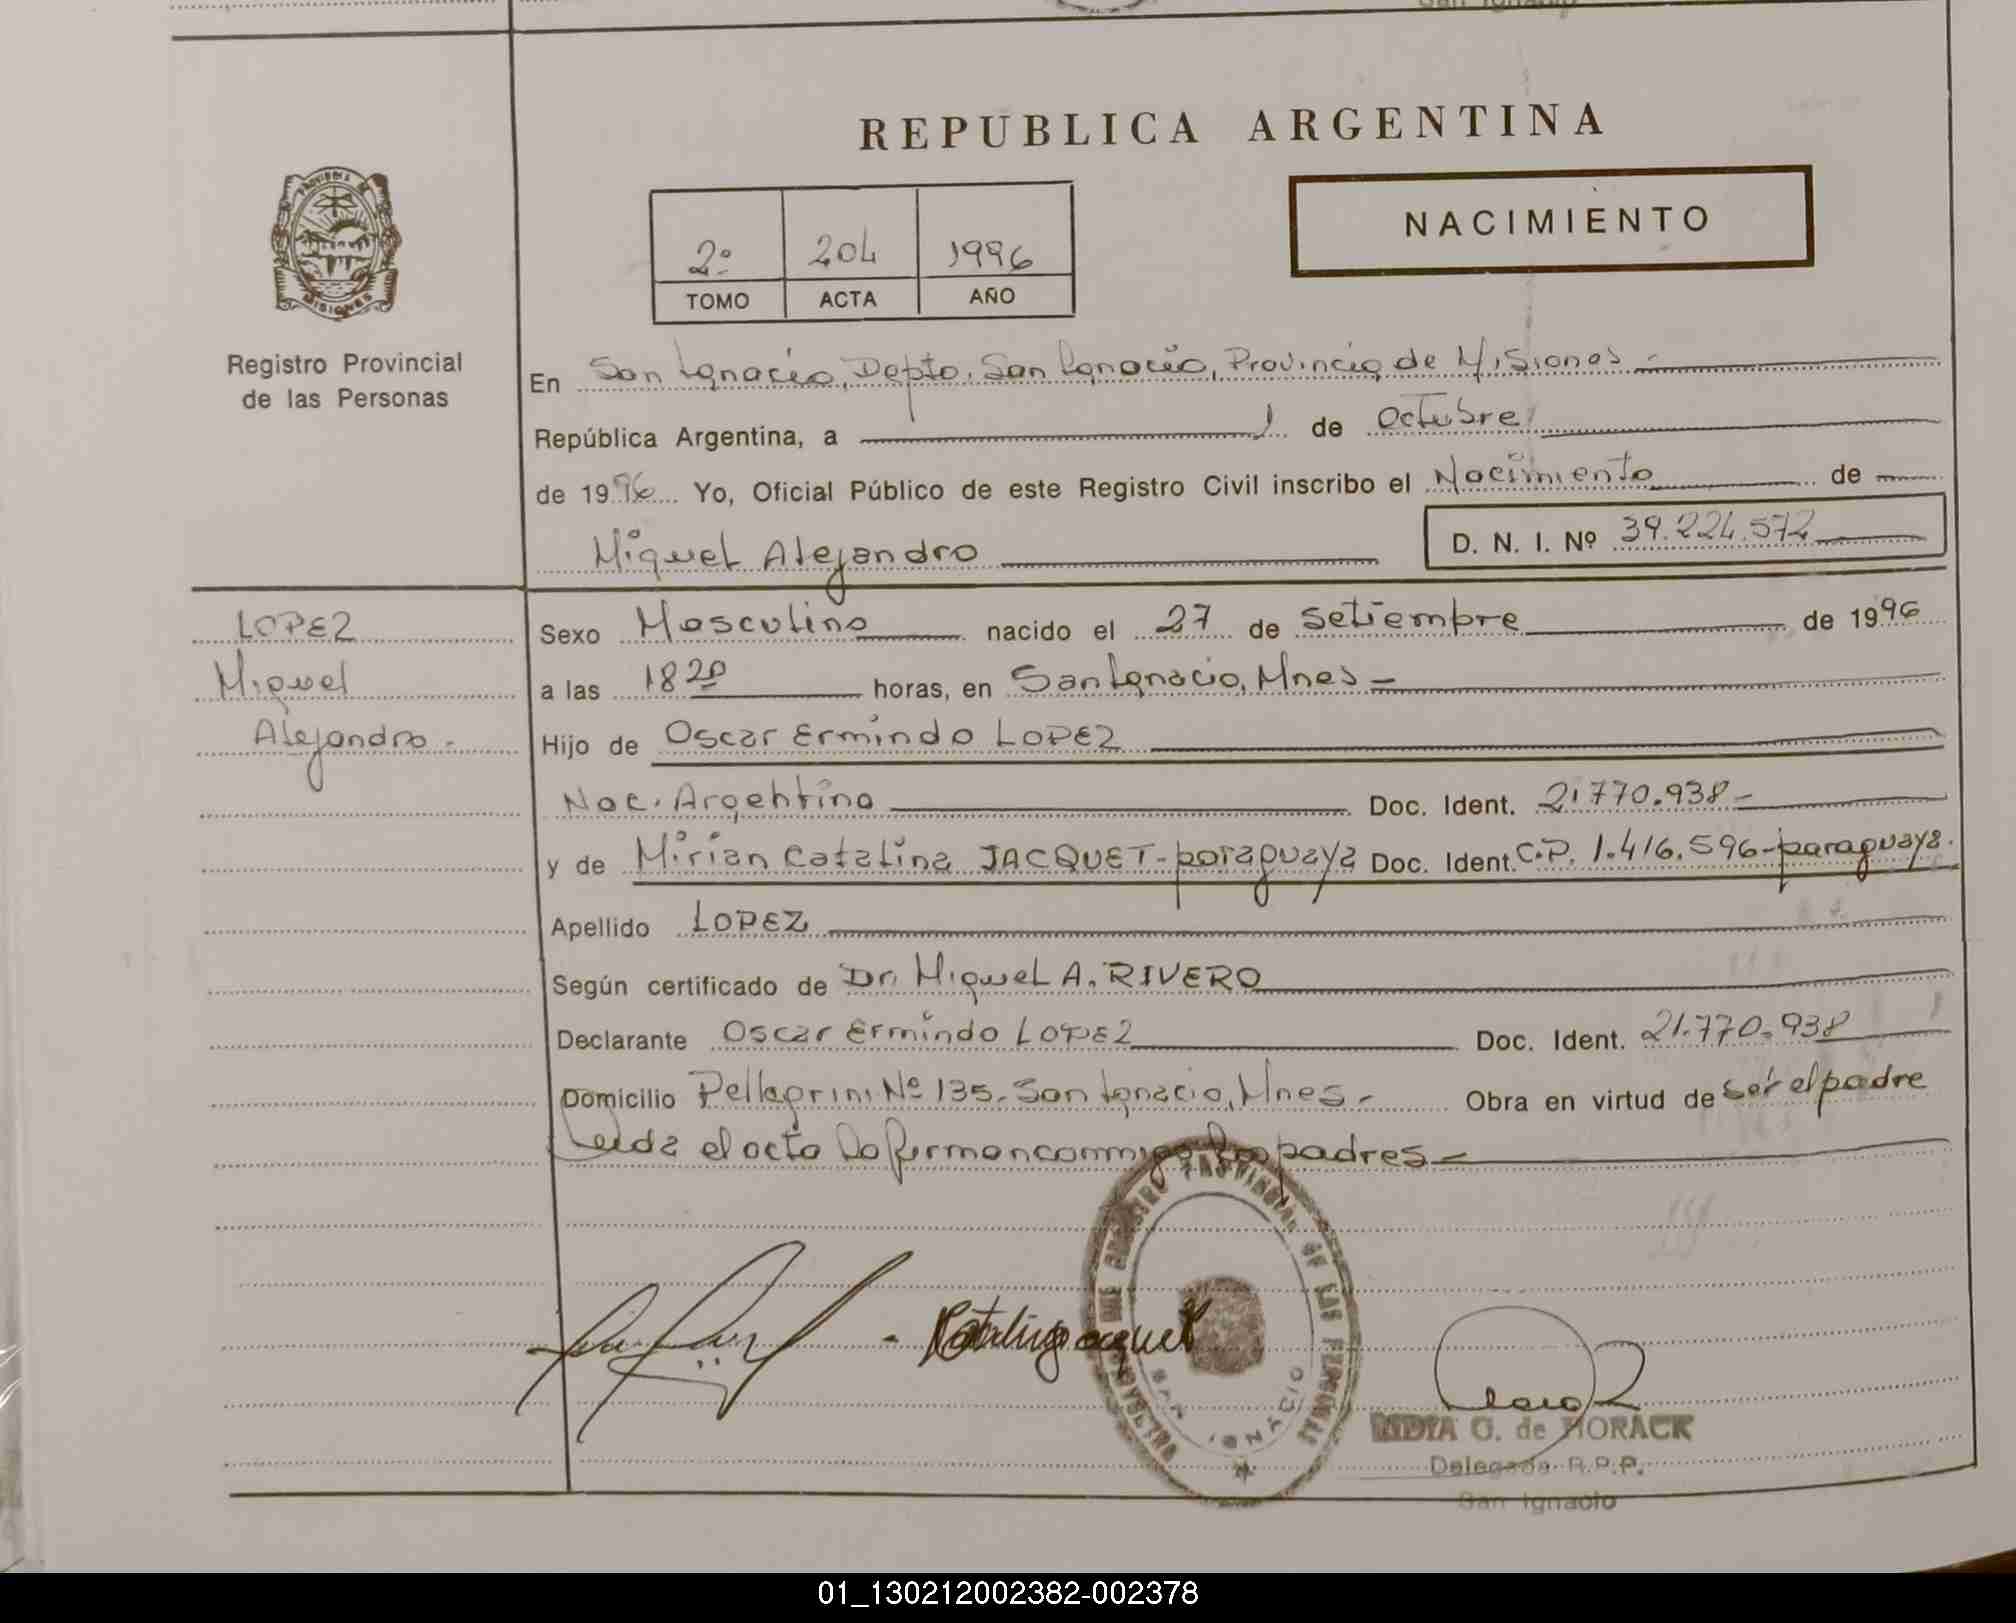 REPUBLICA ARGENTINA
NACIMIENTO
2º 204 1996
TOMO ACTA AÑO
PROVINCIA DE MISIONES
Registro Provincial
de las Personas
En San Ignacio, Depto. San Ignacio, Provincia de Misiones
República Argentina, a 1 de octubre
de 1996 Yo, Oficial Público de este Registro Civil inscribo el Nacimiento de
Miguel Alejandro
D. N. I. Nº 39.224.572
LOPEZ
Miguel
Alejandro
Sexo Masculino nacido el 27 de setiembre de 1996
a las 18 20 horas, en San Ignacio, Mnes
Hijo de Oscar Ermindo LOPEZ
Nac. Argentina Doc. Ident. 21.770.938
y de Mirian Catalina JACQUET - paraguaya Doc. Ident. C.P. 1.416.596 - paraguaya.
Apellido LOPEZ
Según certificado de Dr. Miguel A. RIVERO
Declarante Oscar Ermindo LOPEZ Doc. Ident. 21.770.938
Domicilio Pellegrini Nº 135. San Ignacio, Mnes. Obra en virtud de ser el padre
Leida el acta la firman conmigo los padres
REGISTRO PROVINCIAL DE LAS PERSONAS
SAN IGNACIO
Catalina Jacquet
LIDIA G. de HORACK
Delegada R.P.P.
San Ignacio
01_130212002382-002378